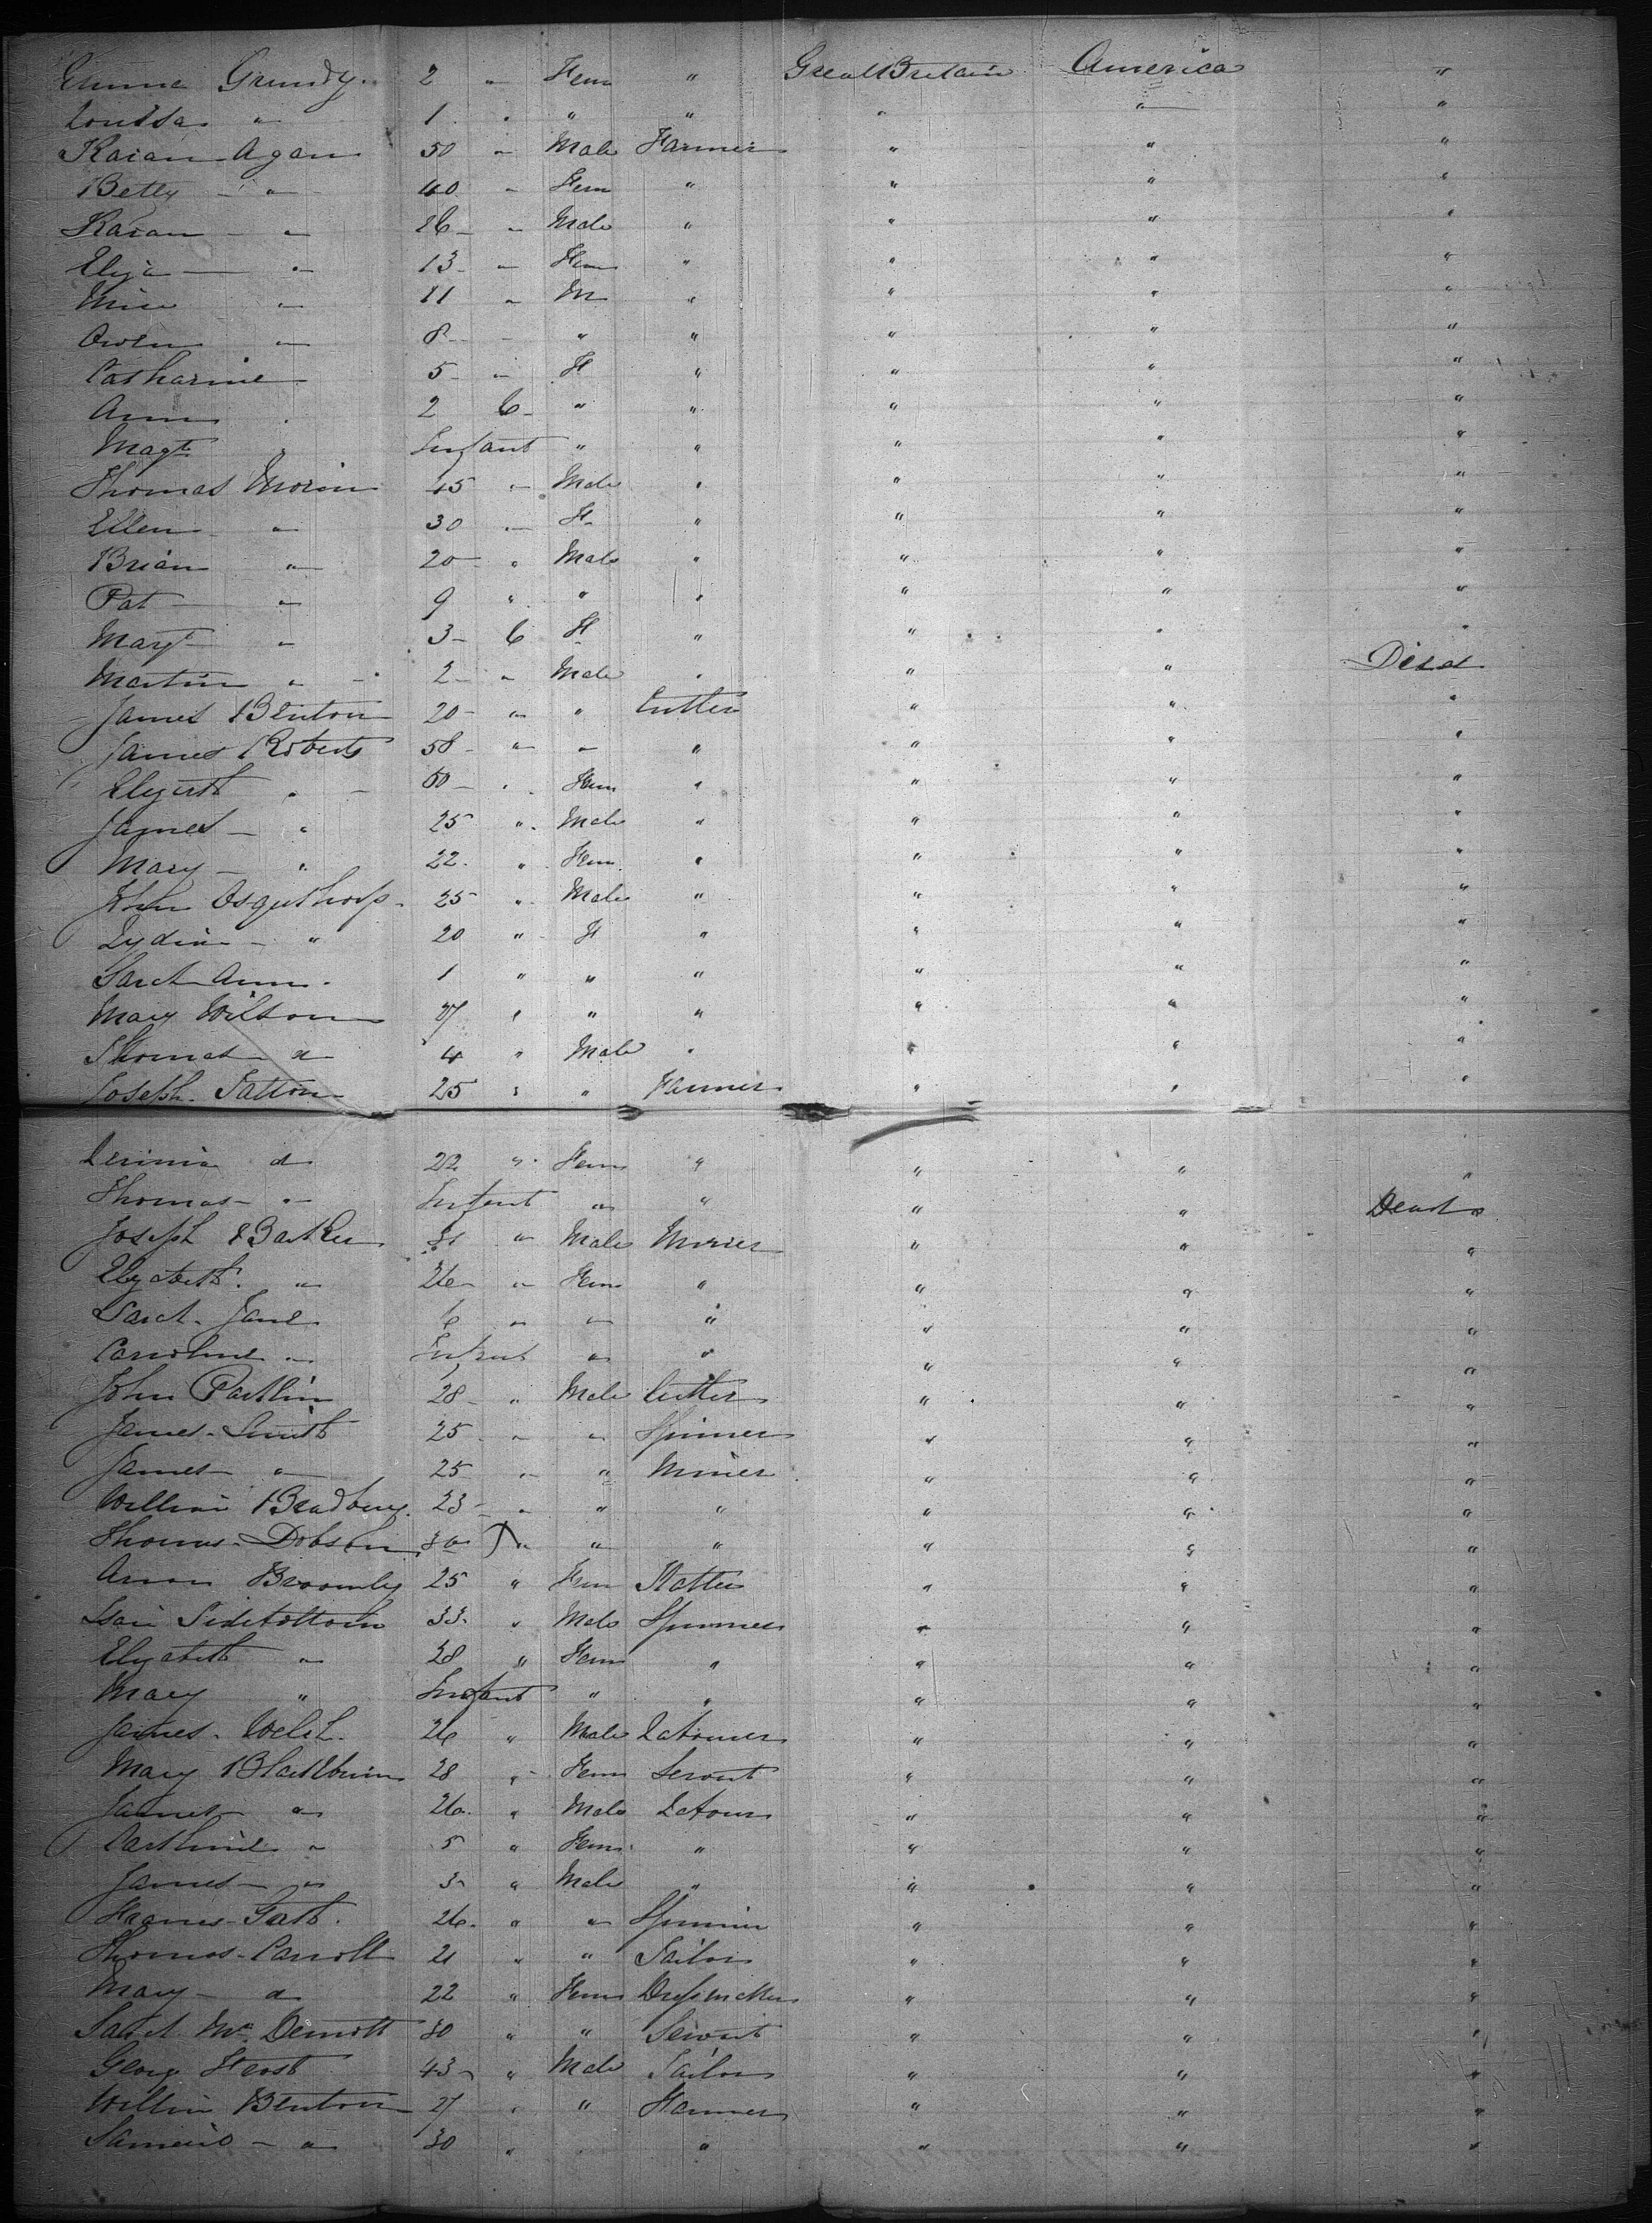 Emma Grundy. 2 " Fem " Great Britain America "
Louisa " 1 . " " " " " "
Kaian Agan 50 " Male Farmer " " "
Betty " 40 " Fem " " " "
Kaian " 16 " Male " " " "
Eliza " 13 " Fem " " " "
" 11 " M " " " "
Owen " 8 " " " " " "
Catharine 5 " F " " " "
Ann 2 6 " " " " "
Magt " Infant " " " " "
Thomas Moran 45 " Male " " " "
Ellen " 30 " F " " " "
Brian " 20 " Male " " " "
Pat " 9 " " " " " "
Magt " 3 6 F " " " "
Martin " 2 " Male " " " Died
James Benton 20 " " Cutler " " "
James Roberts 58 " " " " " "
Elizabth " 50 " Fem " " " "
James " 25 " Male " " " "
Mary " 22 " Fem " " " "
John Osguthorp 25 " Male " " " "
Lydia " 20 " F " " " "
Sarah Ann 1 " " " " " "
Mary Wilson 27 " " " " " "
Thomas do 4 " Male " " " "
Joseph Tatton 25 " " Farmer " " "
do 22 " Fem " " " "
Thomas " Infant " " " " Dead
Joseph Barker 31 " Male Miner " " "
Elyzabeth " 26 " Fem " " " "
Sarah Jane 6 " " " " " "
Caroline " Infant " " " " "
John Partlin 28 " Male Cutler " " "
James Smith 25 " " Spinner " " "
James " 25 " " Miner " " "
William Bradbury 23 " " " " " "
Thomas Dobson 30 " " " " " "
Broomley 25 " Fem Hatter " " "
Sidebottom 33 " Male Spinner " " "
Elyzabeth " 28 " Fem " " " "
Mary " Infant " " " " "
James Welsh 26 " Male Labourer " " "
Mary Blackburn 28 " Fem Servant " " "
James " 26 " Male Labour " " "
" 5 " Fem " " " "
James " 3 " Male " " " "
26 " " Spinner " " "
Thomas Carroll 21 " " Tailor " " "
Mary do 22 " Fem Dressmaker " " "
Sarah McDermott 30 " " Servant " " "
George Frost 43 " Male Tailor " " "
William Benton 27 " " Farmer " " "
" 30 " " " " "